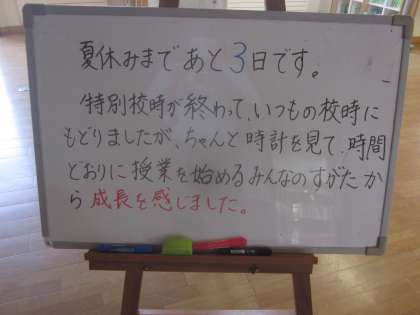 夏休みまであと3日です。
特別校時が終わって、いつもの校時に
もどりましたが、ちゃんと時計を見て、時間
どおりに授業を始めるみんなのすがたか
ら成長を感じました。